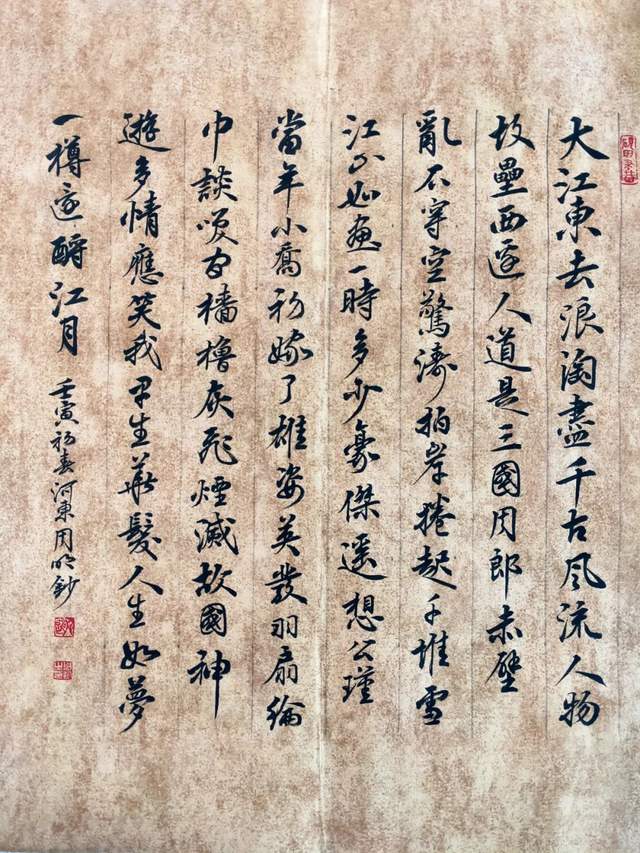 大江東去浪淘盡千古風流人物
故壘西邊人道是三國周郎赤壁
亂石穿空驚濤拍岸捲起千堆雪
江山如畫一時多少豪傑遙想公瑾
當年小喬初嫁了雄姿英發羽扇綸
巾談笑間檣櫓灰飛煙滅故國神
遊多情應笑我早生華髮人生如夢
一樽還酹江月
壬寅初春河東周明鈔